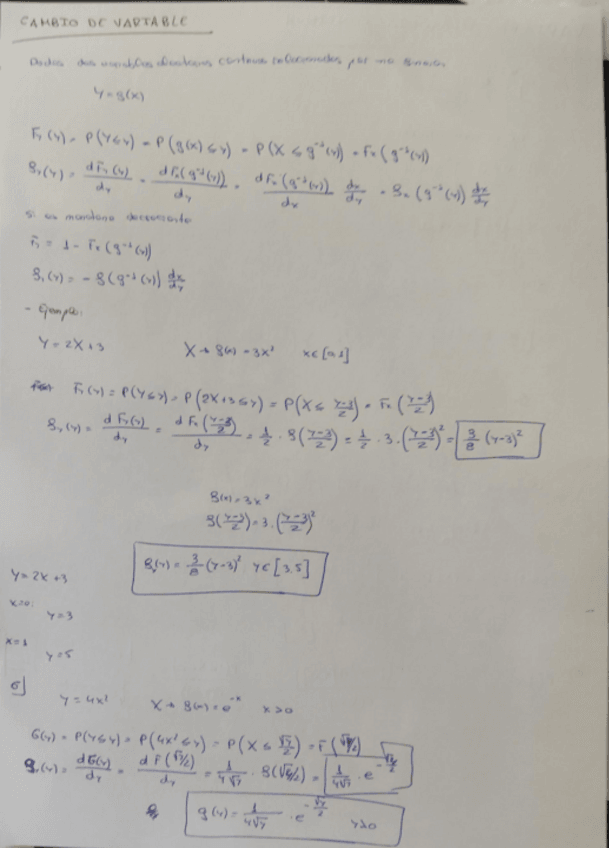 CAMBIO DE VARIABLE
Dadas dos variables aleatorias continuas relacionadas por una función
Y = g(x)
F_Y(y) = P(Y ≤ y) = P(g(x) ≤ y) = P(X ≤ g⁻¹(y)) = F_x(g⁻¹(y))
f_Y(y) = dF_Y(y)/dy = dF_x(g⁻¹(y))/dy = dF_x(g⁻¹(y))/dx · dx/dy = f_x(g⁻¹(y)) dx/dy
Si es monótona decreciente
F_Y = 1 - F_x(g⁻¹(y))
f_Y(y) = - f(g⁻¹(y)) dx/dy
- Ejemplo:
Y = 2X + 3 X → f(x) = 3x² x ∈ [0,1]
F_Y(y) = P(Y ≤ y) = P(2X+3 ≤ y) = P(X ≤ (y-3)/2) = F_x((y-3)/2)
f_Y(y) = dF_Y(y)/dy = dF_x((y-3)/2)/dy = 1/2 · f((y-3)/2) = 1/2 · 3 · ((y-3)/2)² = 3/8 (y-3)²
f(x) = 3x²
f((y-3)/2) = 3 · ((y-3)/2)²
f_Y(y) = 3/8 (y-3)² y ∈ [3,5]
y = 2x + 3
x = 0:
y = 3
x = 1
y = 5
y = 4x² X → f(x) = e^-x x > 0
G(y) = P(Y ≤ y) = P(4x² ≤ y) = P(X ≤ √y/2) = F(√y/2)
g_Y(y) = dG(y)/dy = dF(√y/2)/dy = 1/(4√y) · f(√y/2) = 1/(4√y) · e^(-√y/2)
g(y) = 1/(4√y) · e^(-√y/2) y > 0